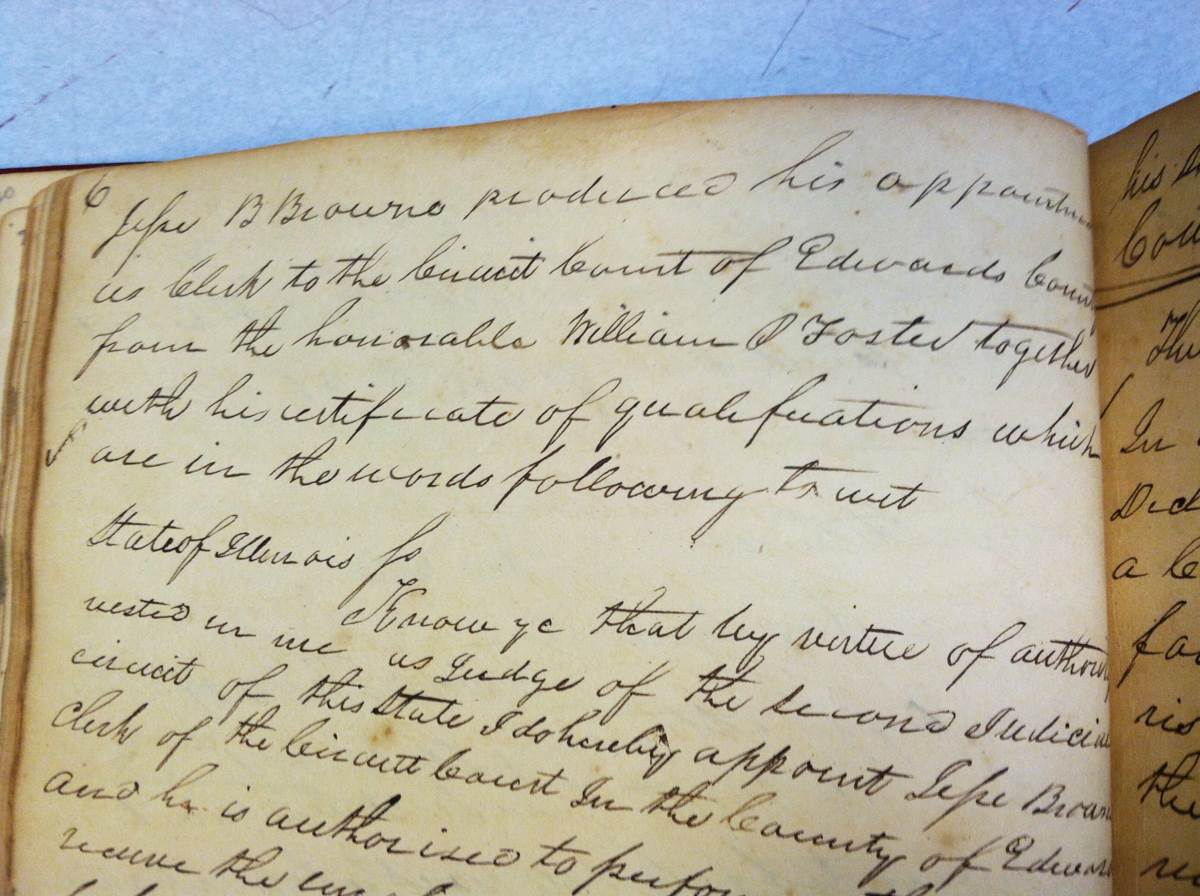 6
Jesse B Browne produced his appointm
as Clerk to the Circuit Court of Edwards County
from the honorable William P Foster together
with his certificate of qualifications which
are in the words following to wit
State of Illinois Ss
Know ye that by virtue of authority
vested in me as Judge of the second Judicial
circuit of this State I do hereby appoint Jesse B Brown
clerk of the Circuit Court In the County of Edwar
and he is authorised to perfo
receive the
his
Cou
In
Ded
a C
fa
ris
the